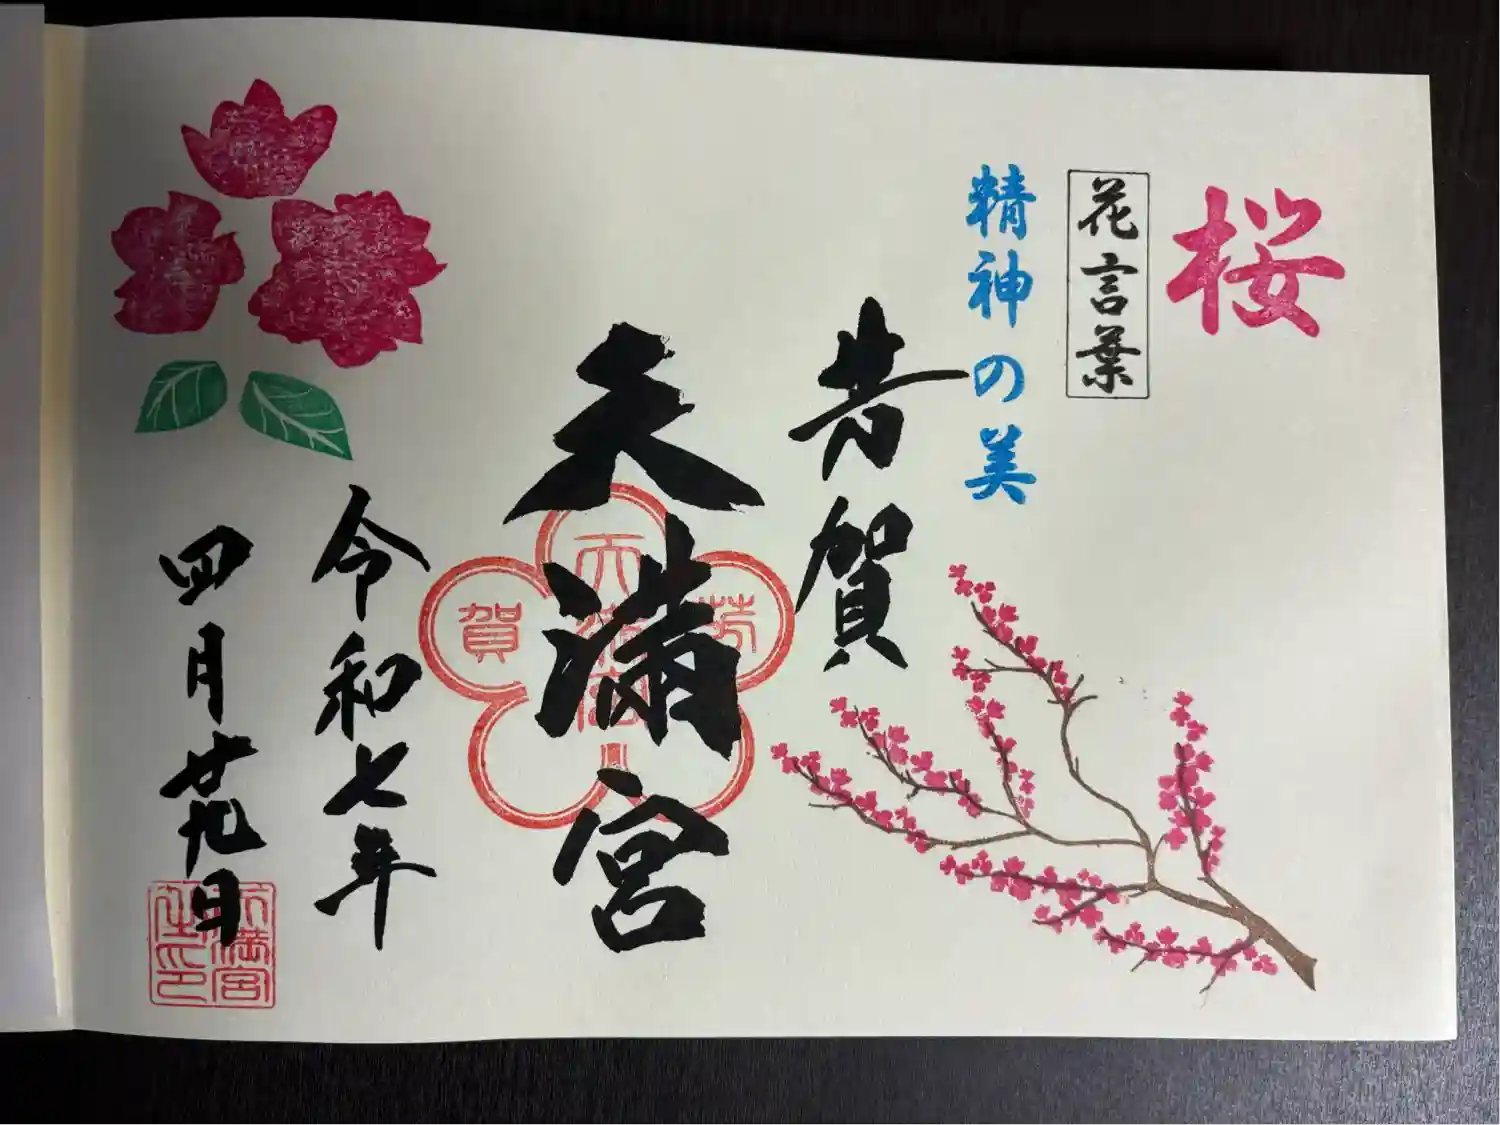 桜
花言葉
精神の美
芳賀
天満宮
芳
天満宮
賀
令和七年
四月廿九日
天満宮